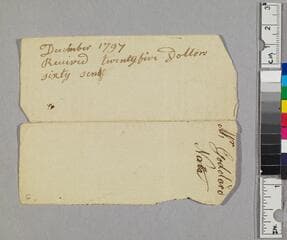 December 1797
Received twentyfive Dollars
sixty cents
Mr Goddard
Note